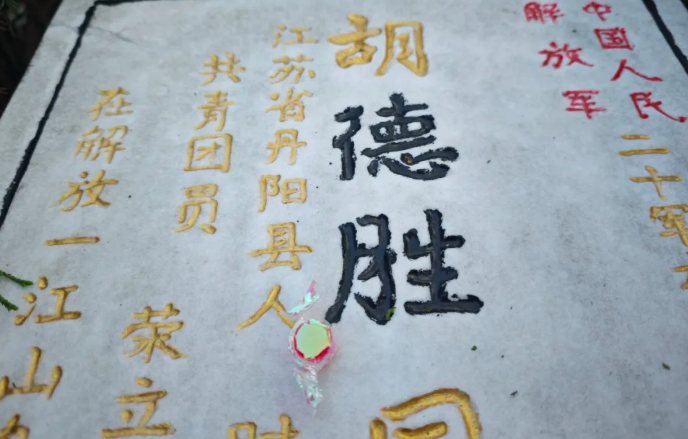 中国人民
解放军
二十军
胡德胜
同
江苏省丹阳县人
时
共青团员
荣立
在解放一江山